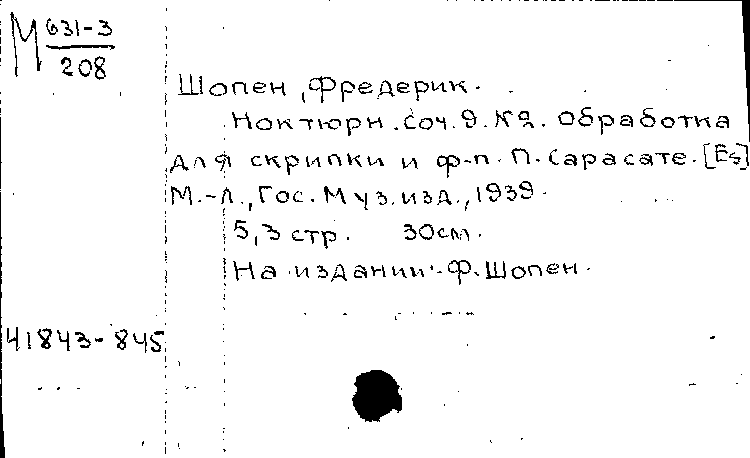 М 631-3
208
Шопен, Фредерик.
Ноктюрн. Соч. 9. №2. Обработка
для скрипки и ф-п. П. Сарасате. [Es]
М.-Л., Гос. Муз. изд., 1939.
5,3 стр. 30см.
На издании: Ф. Шопен.
41843-845